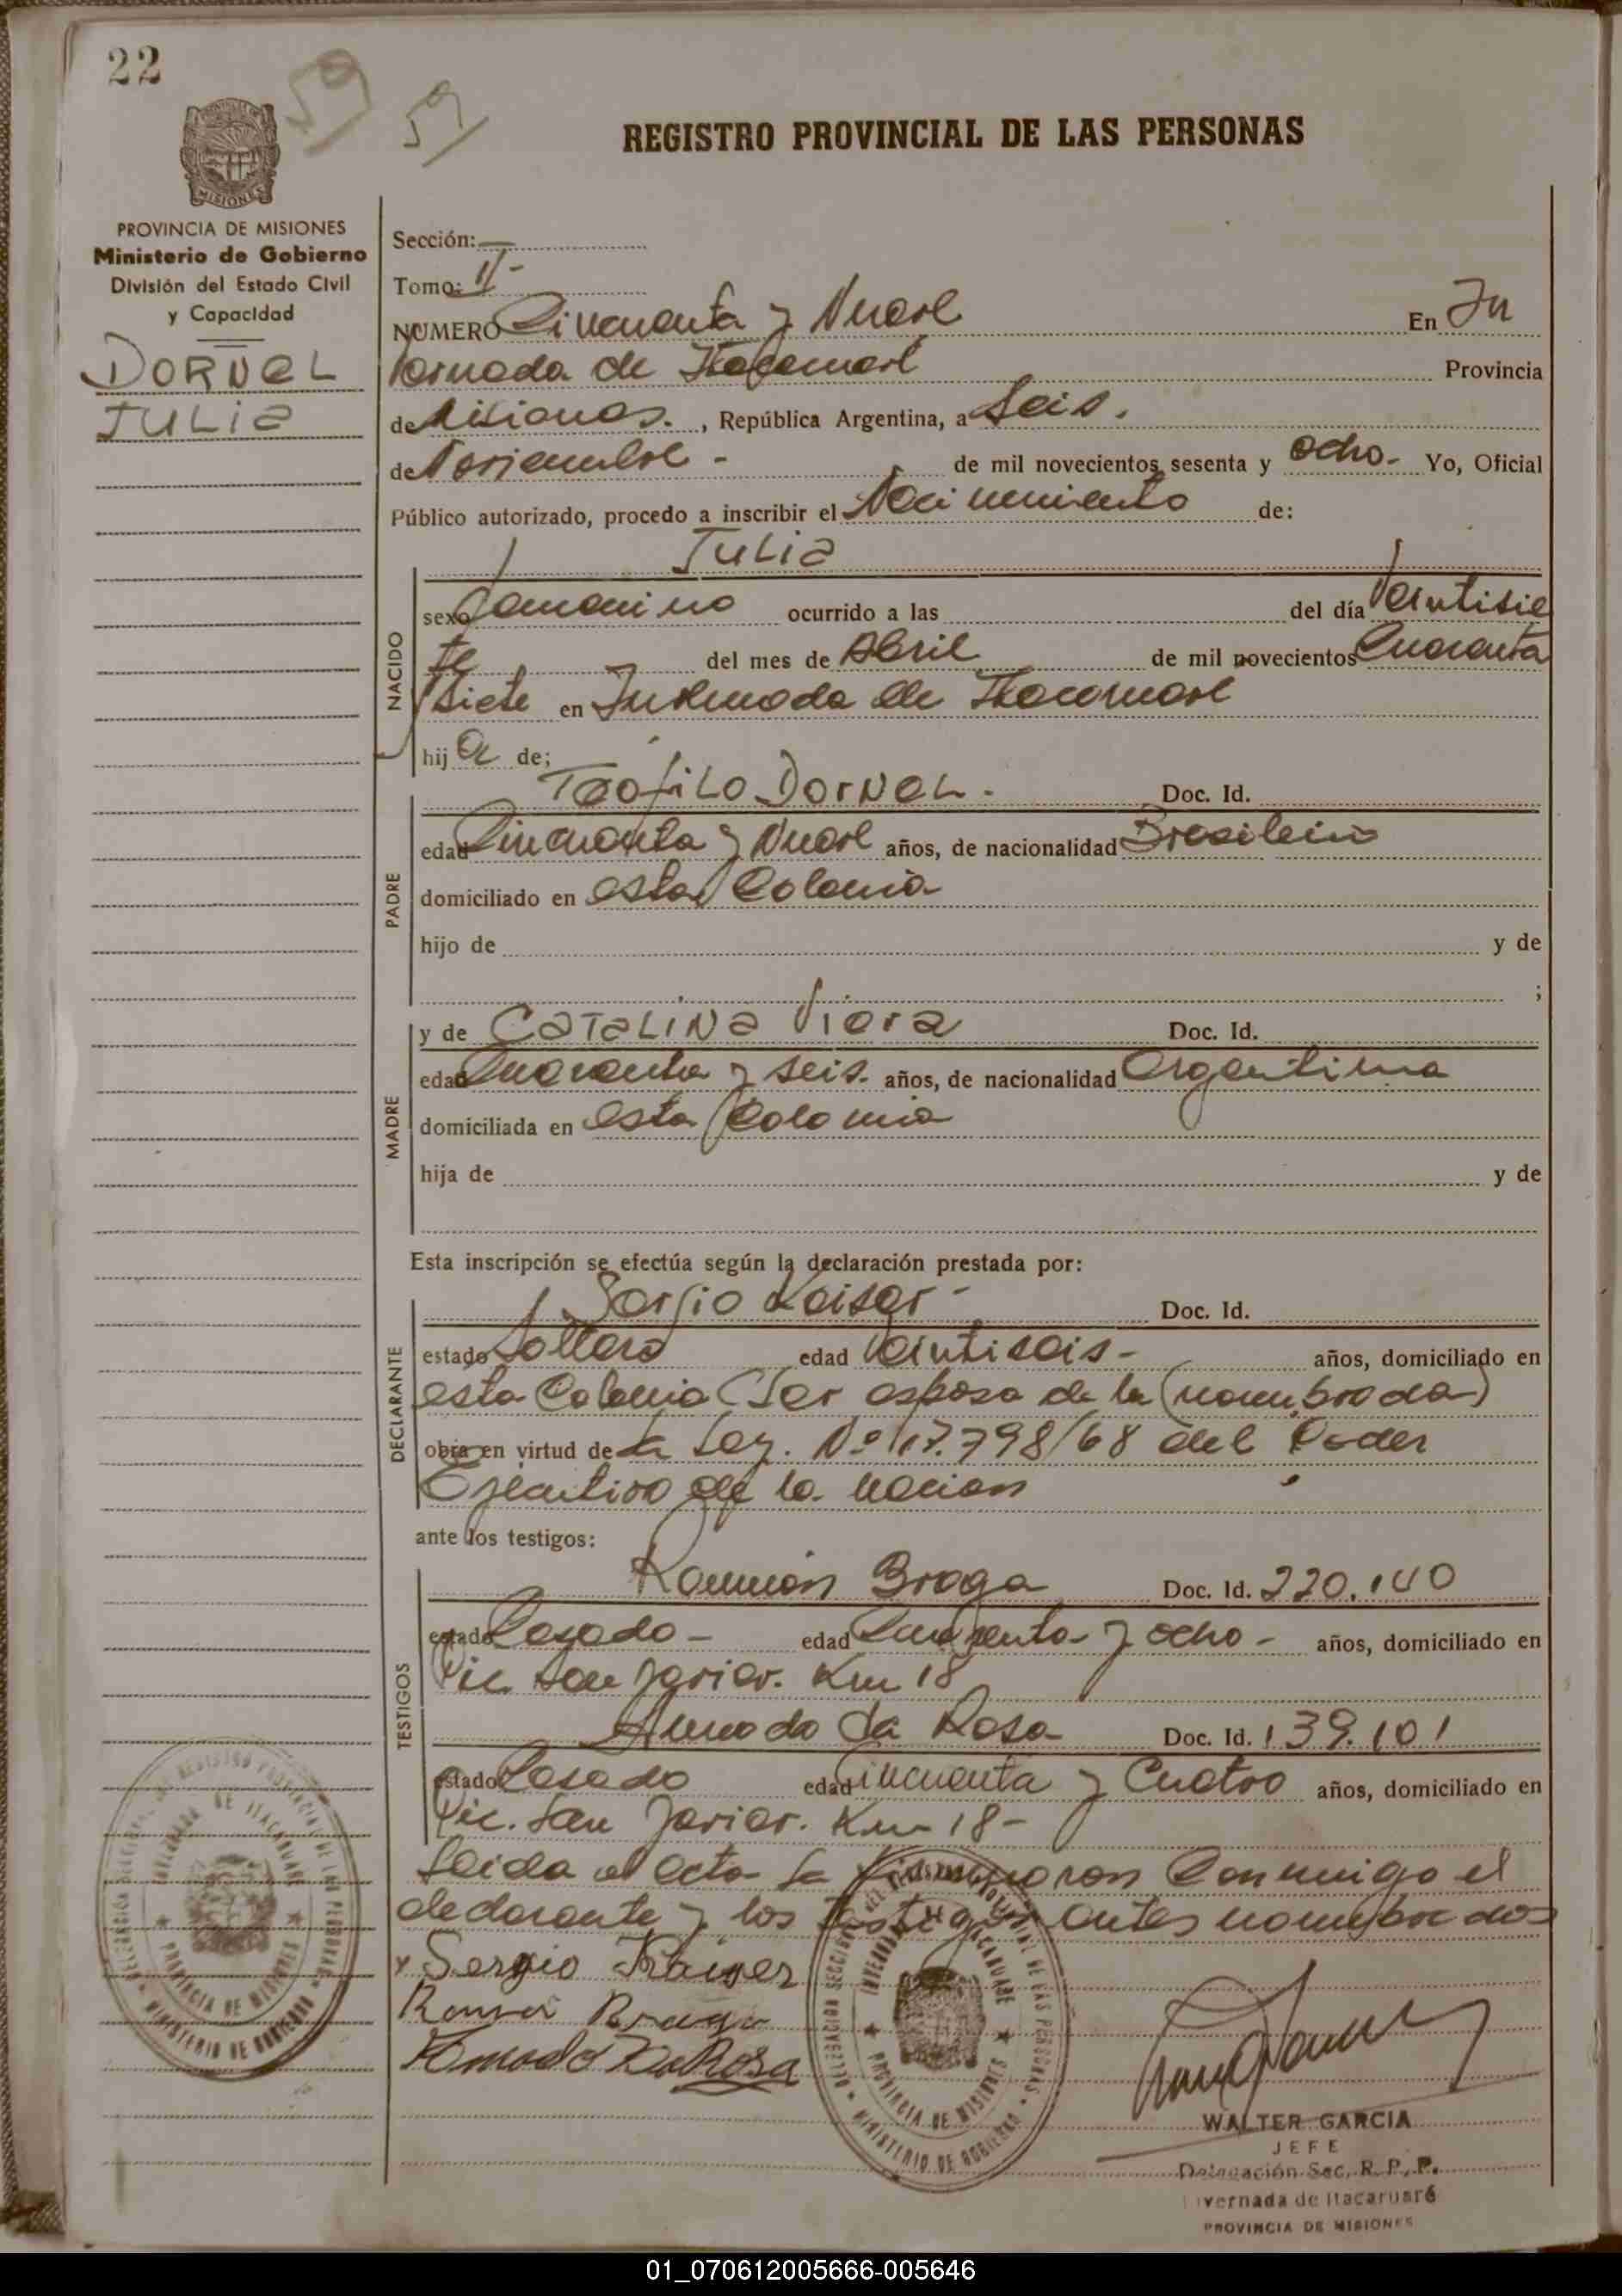 22
59
59
REGISTRO PROVINCIAL DE LAS PERSONAS
MISIONES
PROVINCIA DE MISIONES
Ministerio de Gobierno
División del Estado Civil
y Capacidad
DORNEL
JULIA
Sección: —
Tomo: II -
NUMERO Cincuenta y Nueve En In
vernada de Itacaruaré Provincia
de Misiones. , República Argentina, a Seis.
de Noviembre - de mil novecientos sesenta y ocho - Yo, Oficial
Público autorizado, procedo a inscribir el Nacimiento de:
JULIA
NACIDO
sexo Femenino ocurrido a las del día Veintisie
te del mes de Abril de mil novecientos Cuarenta
y Siete en Invernada de Itacaruaré
hij a de;
PADRE
Teofilo Dornel - Doc. Id.
edad Cincuenta y Nueve años, de nacionalidad Brasilero
domiciliado en esta Colonia
hijo de y de
;
MADRE
y de Catalina Viera Doc. Id.
edad Cuarenta y seis. años, de nacionalidad Argentina
domiciliada en esta Colonia
hija de y de
Esta inscripción se efectúa según la declaración prestada por:
DECLARANTE
Sergio Kaiser - Doc. Id.
estado Soltero edad Veintiseis - años, domiciliado en
esta Colonia (Ser esposo de la nombrada)
obra en virtud de la Ley. Nº 17.798/68 del Poder
Ejecutivo de la Nacion
ante los testigos:
TESTIGOS
Ramón Braga Doc. Id. 220.140
estado Casado - edad y ocho - años, domiciliado en
Pic. San Javier. Km 18
Amado da Rosa Doc. Id. 139.101
estado Casado edad Cincuenta y Cuatro años, domiciliado en
Pic. San Javier. Km 18 -
Leida el acta la firmaron conmigo el
declarante y los testigos antes nombrados
x Sergio Kaiser
Ramon Braga
Amado Da Rosa
DELEGACION SECCIONAL DEL REGISTRO PROVINCIAL DE LAS PERSONAS
INVERNADA DE ITACARUARE
PROVINCIA DE MISIONES
MINISTERIO DE GOBIERNO
DELEGACION SECCIONAL DEL REGISTRO PROVINCIAL DE LAS PERSONAS
INVERNADA DE ITACARUARE
PROVINCIA DE MISIONES
MINISTERIO DE GOBIERNO
WALTER GARCIA
JEFE
Delegación Sec. R. P. P.
Invernada de Itacaruaré
PROVINCIA DE MISIONES
01_070612005666-005646